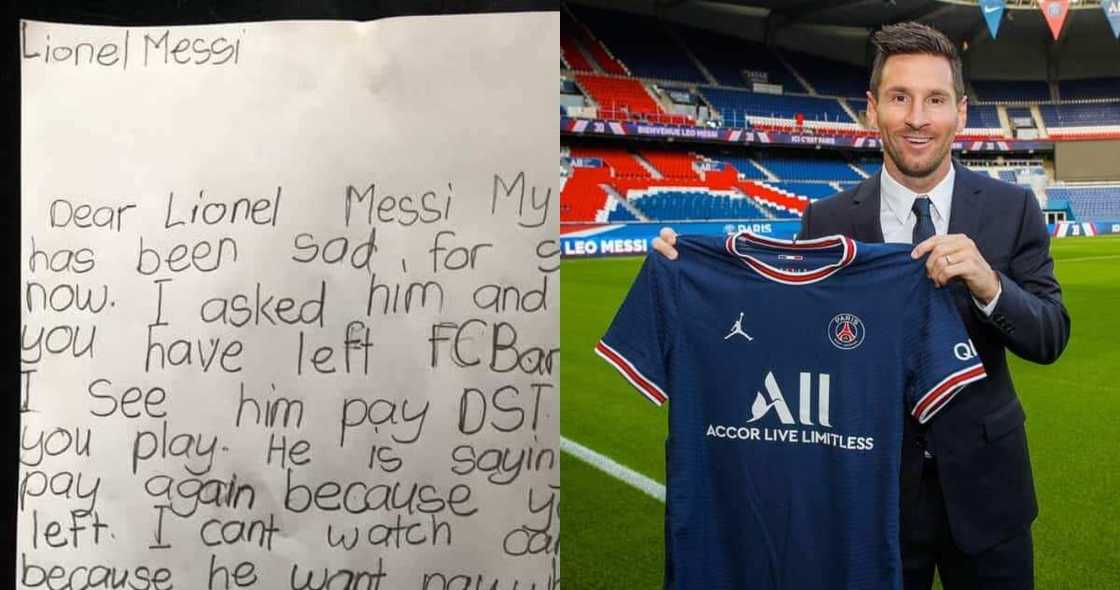 Lionel Messi
Dear Lionel Messi My
has been sad for
now. I asked him and
you have left FCBar
I see him pay DST
you play. He is sayin
pay again because
left. I cant watch
because he want pay
BIENVENUE LEO MESSI
ICI C'EST PARIS
LEO MESSI
PARIS
PARIS
ALL
ACCOR LIVE LIMITLESS